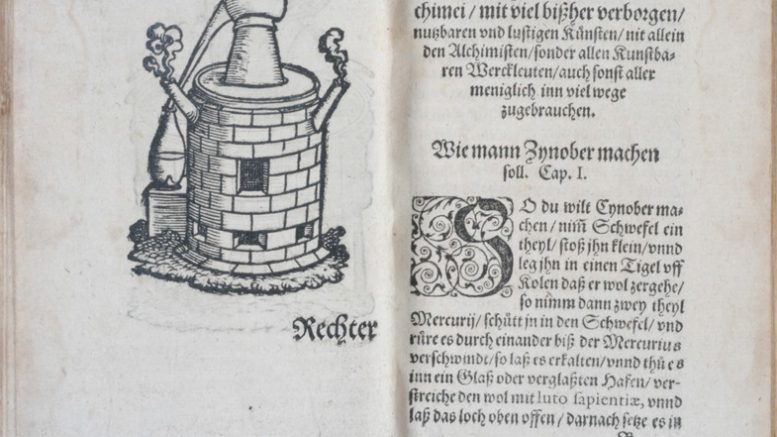 Rechter
chimei / mit viel bißher verborgen /
nutzbaren vnd lustigen Künsten / nit allein
den Alchimisten / sonder allen Kunstba-
ren Werckleuten / auch sonst aller
meniglich inn viel wege
zugebrauchen.
Wie mann Zynober machen
soll. Cap. I.
SO du wilt Cynober ma-
chen / nim̃ Schwefel ein
theyl / stoß jhn klein / vnnd
leg jhn in einen Tigel vff
Kolen daß er wol zergehe /
so nim̃m dann zwey theyl
Mercurij / schütt jn in den Schwefel / vnd
rüre es durch einander biß der Mercurius
verschwindt / so laß es erkalten / vnnd thů es
inn ein Glaß oder verglaßten Hafen / ver-
streiche den wol mit luto sapientiæ, vnnd
laß das loch oben offen / darnach setze es in